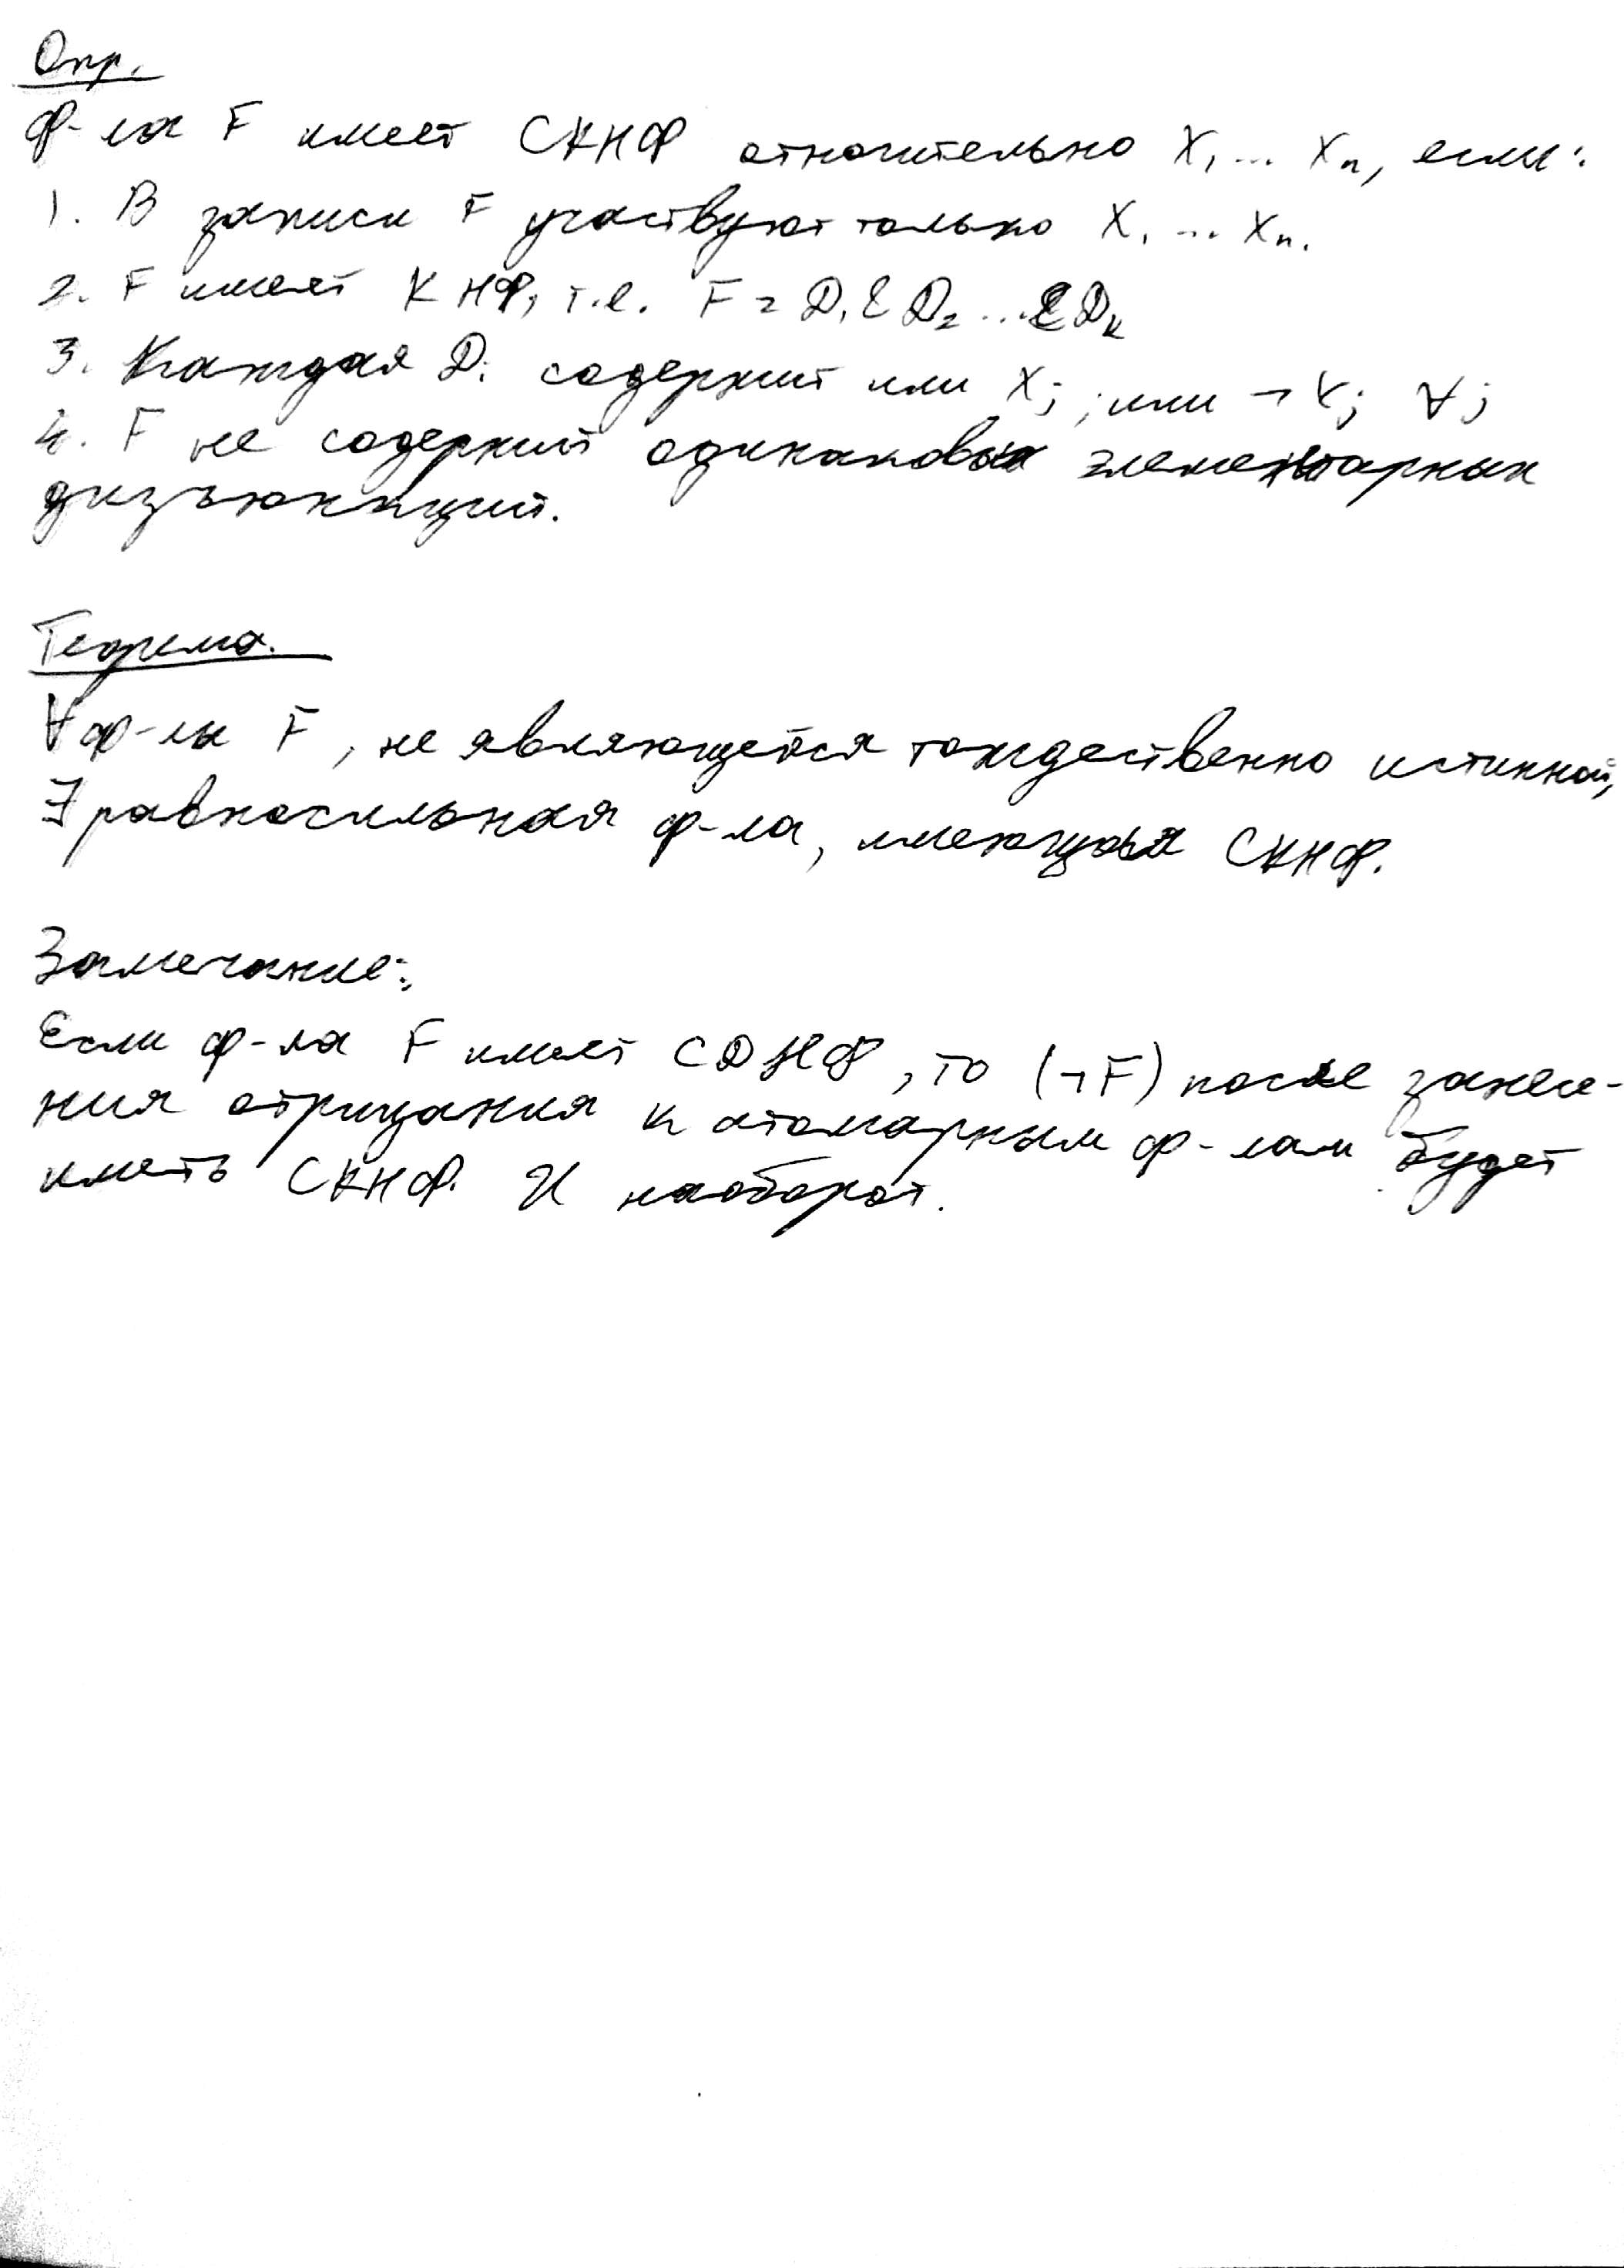 Опр.
Ф-ла F имеет СКНФ относительно X₁ ... Xₙ, если:
1. В записи F участвуют только X₁ ... Xₙ.
2. F имеет КНФ, т.е. F = D₁ & D₂ ... & Dₖ
3. Каждая Dᵢ содержит или Xⱼ, или ¬Xⱼ ∀j
4. F не содержит одинаковых элементарных
дизъюнкций.
Теорема.
∀ ф-лы F, не являющейся тождественно истинной,
∃ равносильная ф-ла, имеющая СКНФ.
Замечание:
Если ф-ла F имеет СДНФ, то (¬F) после занесе-
ния отрицания к атомарным ф-лам будет
иметь СКНФ. И наоборот.